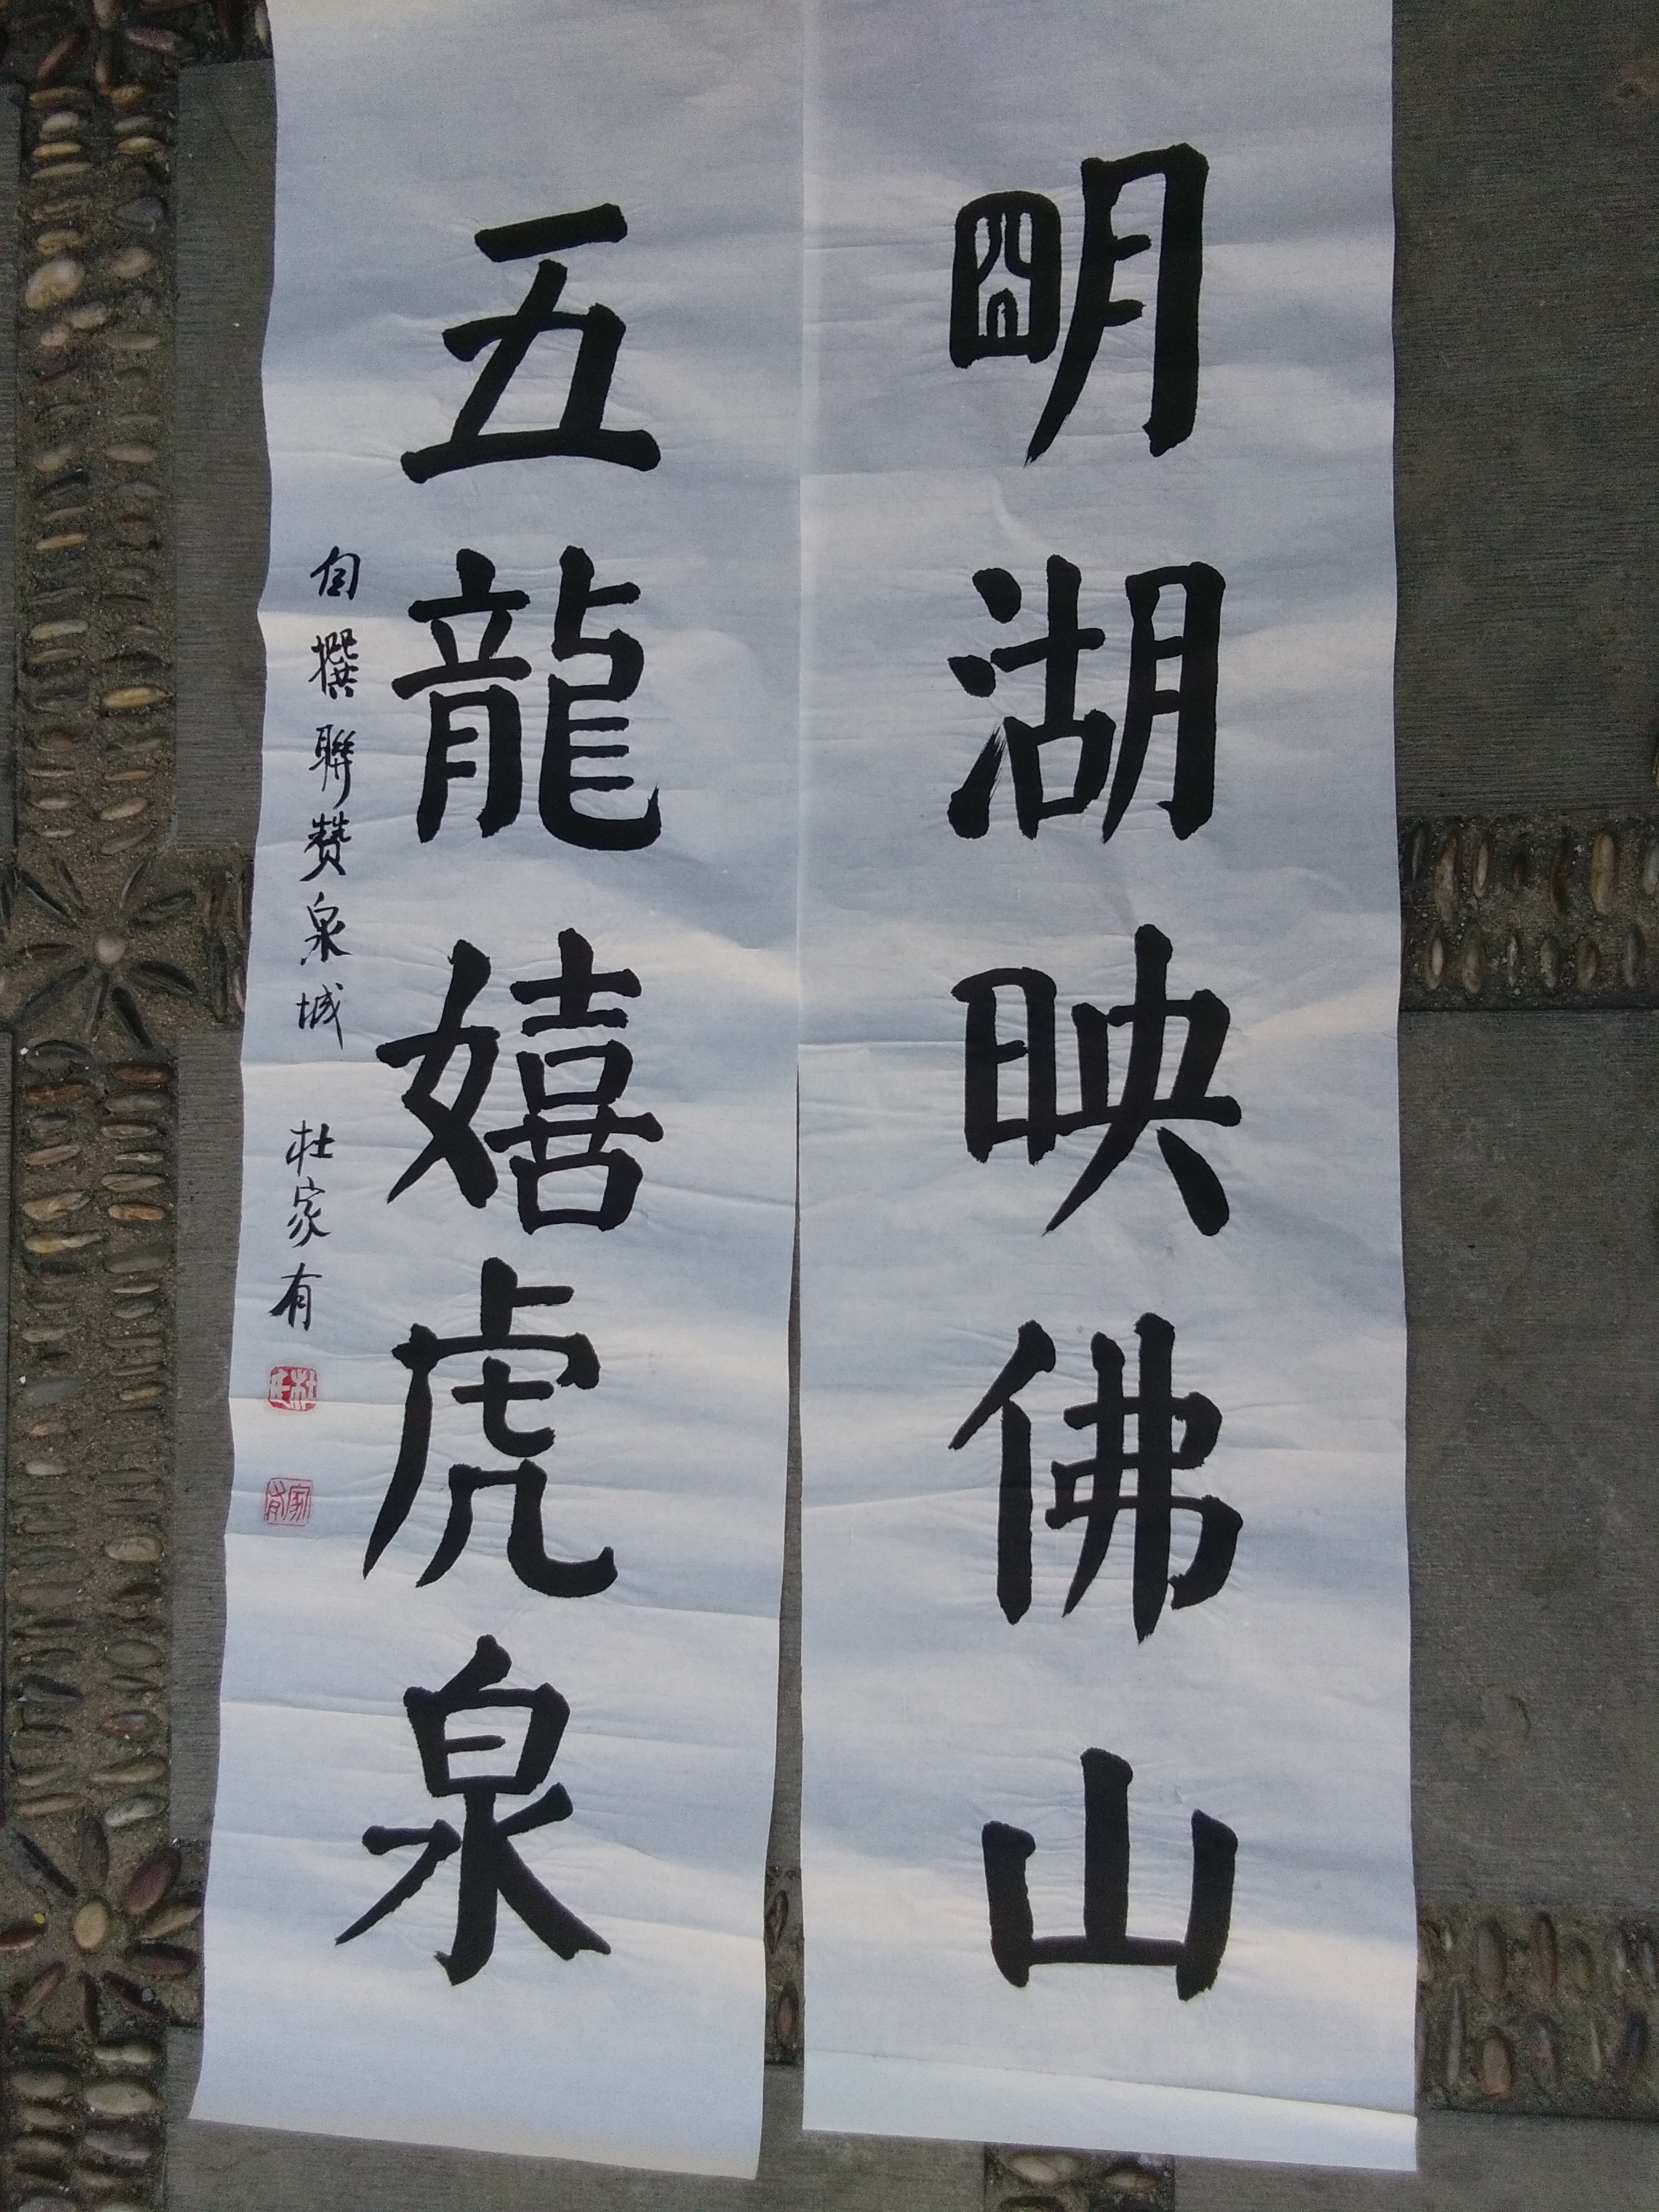 明湖映佛山
五龍嬉虎泉
自撰聯赞泉城 杜家有
家有